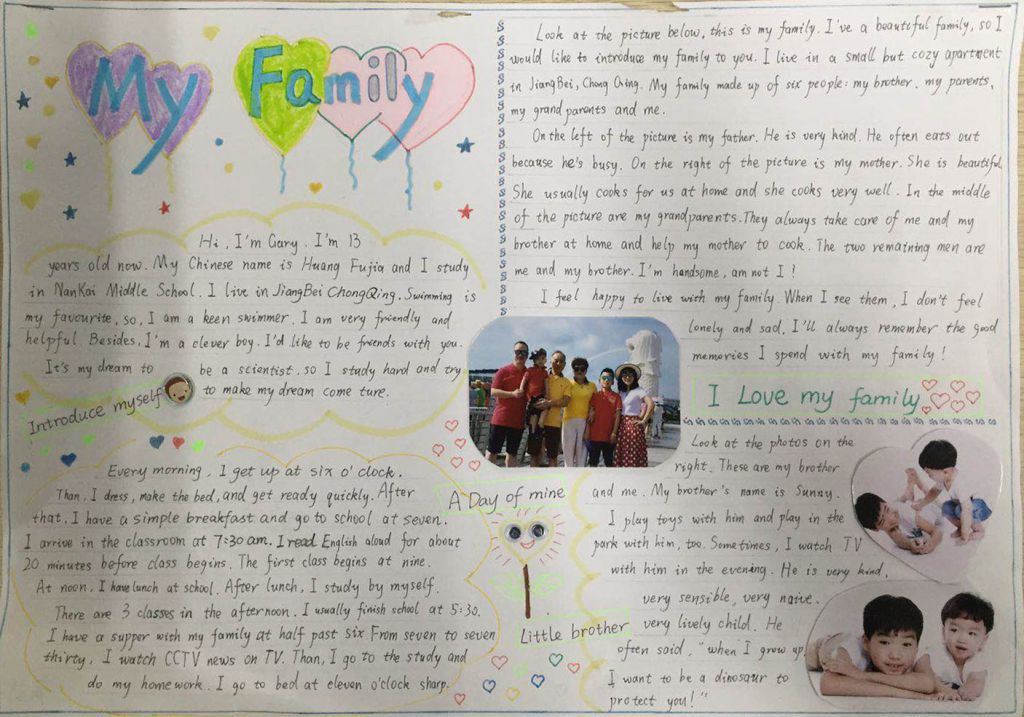 My Family
Hi, I'm Gary. I'm 13
years old now. My Chinese name is Huang Fujia and I study
in NanKai Middle School. I live in JiangBei ChongQing. Swimming is
my favourite, so, I am a keen swimmer. I am very friendly and
helpful. Besides, I'm a clever boy. I'd like to be friends with you.
It's my dream to be a scientist, so I study hard and try
to make my dream come ture.
Introduce myself
Every morning, I get up at six o'clock.
Than, I dress, make the bed, and get ready quickly. After
that, I have a simple breakfast and go to school at seven.
I arrive in the classroom at 7:30 am. I read English aloud for about
20 minutes before class begins. The first class begins at nine.
At noon, I have lunch at school. After lunch, I study by myself.
There are 3 classes in the afternoon. I usually finish school at 5:30.
I have a supper with my family at half past six From seven to seven
thirty, I watch CCTV news on TV. Than, I go to the study and
do my homework. I go to bed at eleven o'clock sharp.
A Day of mine
Look at the picture below, this is my family. I've a beautiful family, so I
would like to introduce my family to you. I live in a small but cozy apartment
in JiangBei, Chong Qing. My family made up of six people: my brother, my parents,
my grandparents and me.
On the left of the picture is my father. He is very kind. He often eats out
because he's busy. On the right of the picture is my mother. She is beautiful.
She usually cooks for us at home and she cooks very well. In the middle
of the picture are my grandparents. They always take care of me and my
brother at home and help my mother to cook. The two remaining men are
me and my brother. I'm handsome, am not I?
I feel happy to live with my family. When I see them, I don't feel
lonely and sad. I'll always remember the good
memories I spend with my family!
I Love my family
Look at the photos on the
right. These are my brother
and me. My brother's name is Sunny.
I play toys with him and play in the
park with him, too. Sometimes, I watch TV
with him in the evening. He is very kind,
very sensible, very naive,
very lively child. He
often said, "when I grow up,
I want to be a dinosaur to
protect you!"
Little brother